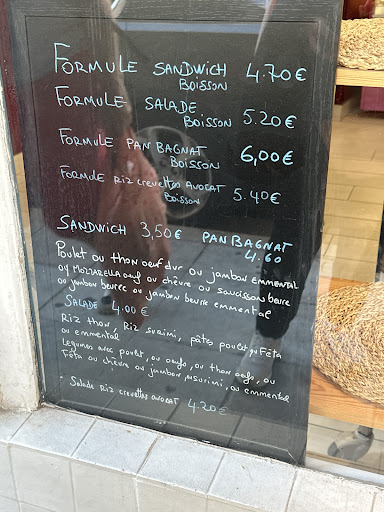 FORMULE SANDWICH 4.70€
BOISSON
FORMULE SALADE
BOISSON 5.20€
FORMULE PAN BAGNAT 6,00€
BOISSON
FORMULE RIZ CREVETTES AVOCAT 5.40€
BOISSON
SANDWICH 3,50€ PAN BAGNAT
4.60
Poulet ou thon oeuf dur ou jambon emmental
ou Mozzarella oeuf ou chèvre ou saucisson beurre
ou jambon beurre ou jambon beurre emmental
SALADE 4.00€
Riz thon, Riz surimi, pâtes poulet ou Fêta
ou emmental
Legumes avec poulet, ou oeufs, ou thon oeufs, ou
Fêta ou chèvre ou jambon, surimi, ou emmental
Salade Riz crevettes avocat 4.20€